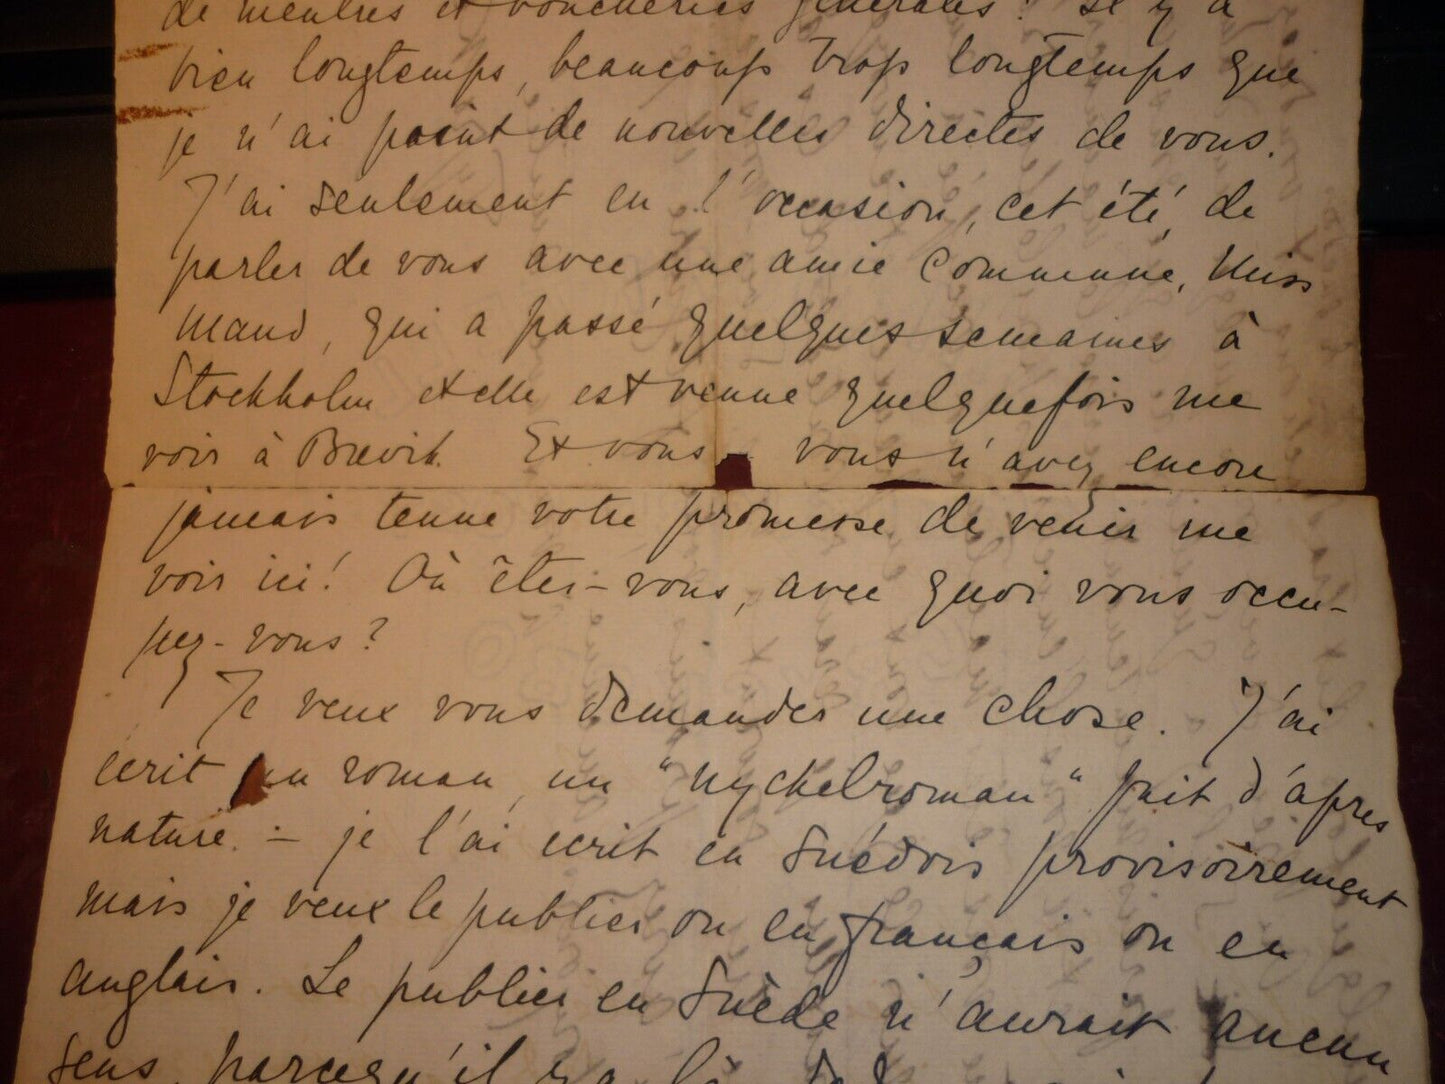 de meutres et boucheries générales! Il y a
bien longtemps, beaucoup trop longtemps que
je n'ai point de nouvelles directes de vous.
J'ai seulement eu l'occasion, cet été, de
parler de vous avec une amie commune, Miss
Maud, qui a passé quelques semaines à
Stockholm et elle est venue quelquefois me
voir à Brevik. Et vous vous n'avez encore
jamais tenue votre promesse de venir me
voir ici! Où êtes-vous, avec quoi vous occu-
pez-vous?
Je veux vous demander une chose. J'ai
écrit un roman, un "nyckelroman" fait d'après
nature. - je l'ai écrit en Suédois provisoirement
mais je veux le publier ou en français ou en
anglais. Le publier en Suède n'aurait aucun
sens, parcequ'il